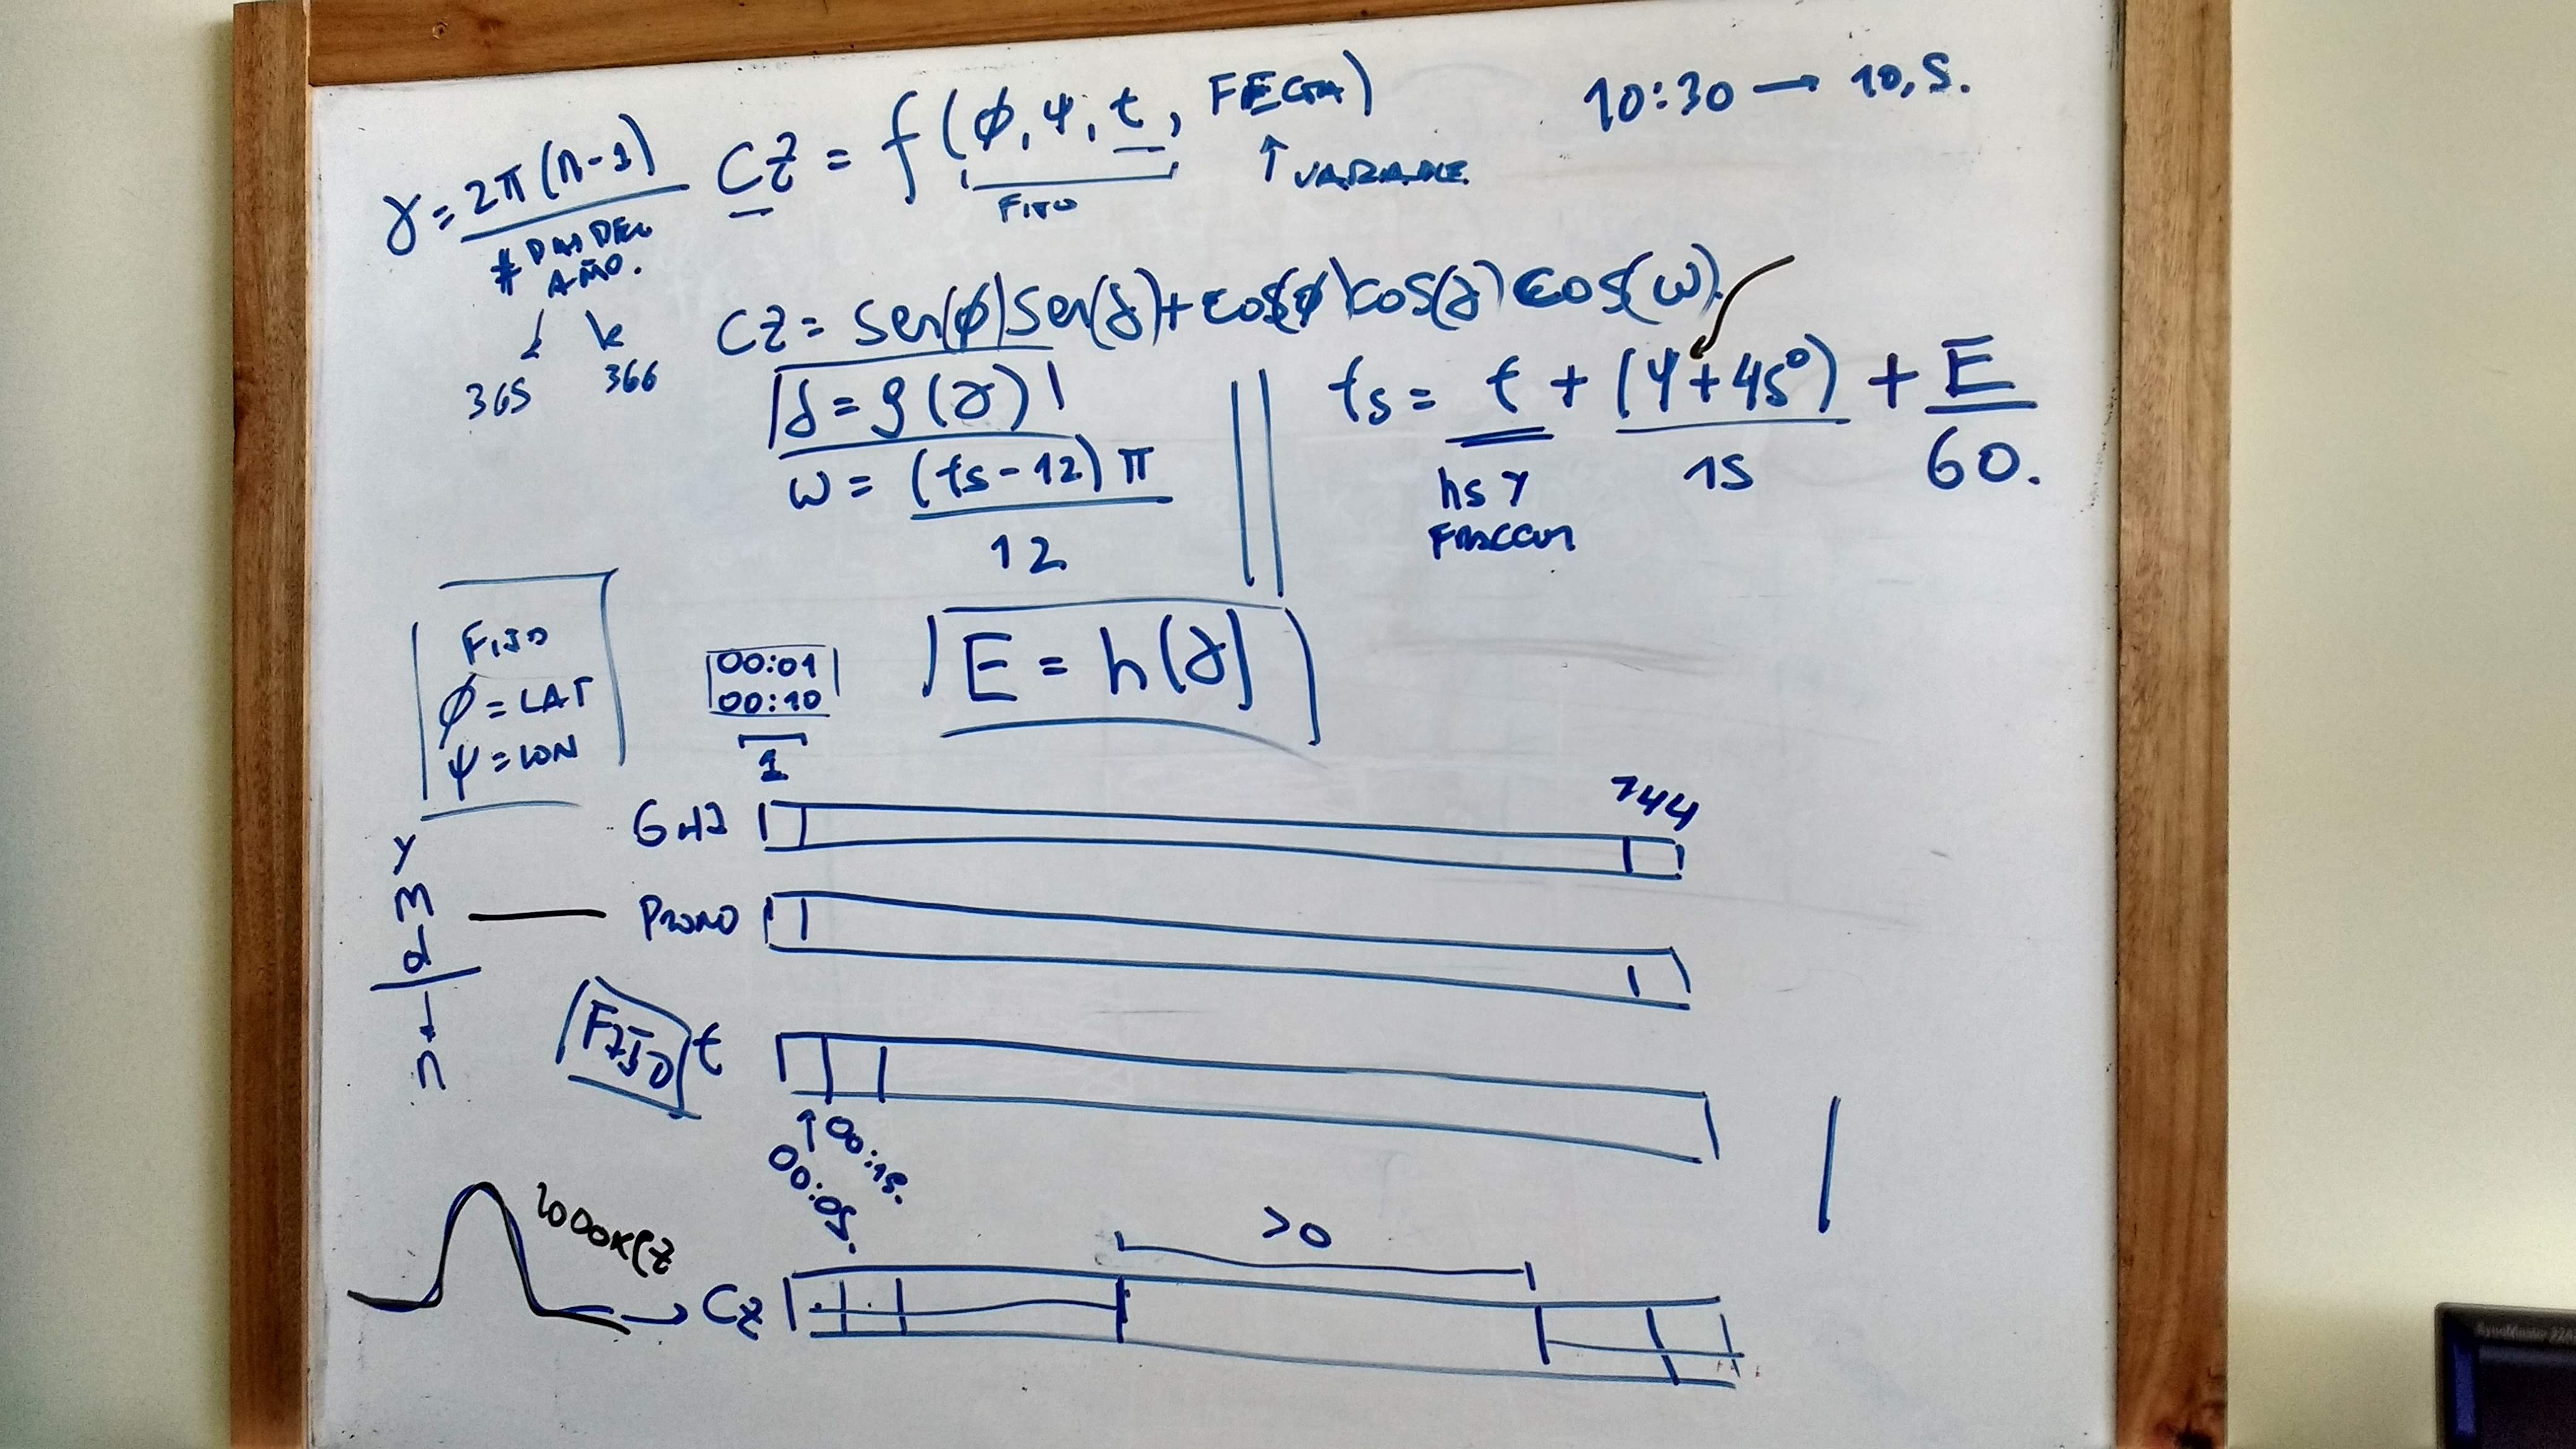 γ = 2π(n-1) / # DIAS DEL AÑO.
365 366
CZ = f(φ, ψ, t, FECHA)
FIJO
↑ VARIABLE
10:30 → 10,5.
CZ = Sen(φ)Sen(δ)+cos(φ)cos(δ)cos(ω).
δ = g(γ)
ω = (ts-12)π / 12
ts = t + (ψ+45°) / 15 + E / 60.
hs y
FRACCION
FIJO
φ = LAT
ψ = LON
00:01
00:10
1
E = h(γ)
144
GHI
Y
M
d
n
PRONO
FIJO t
00:05.
00:15.
1000xCz
>0
→ Cz
SyncMaster